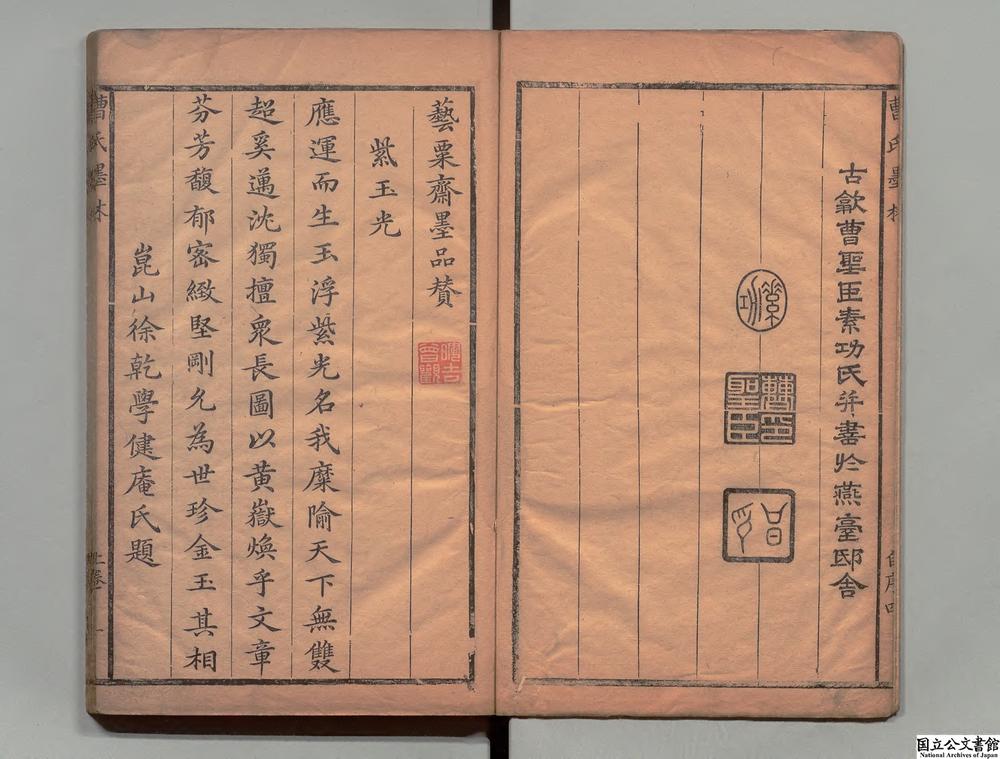 曹氏墨林
自序四
古歙曹聖臣素功氏并書於燕臺邸舍
曹聖臣印
藝粟齋墨品賛
紫玉光
應運而生玉浮紫光名我糜隃天下無雙
超奚邁沈獨擅衆長圖以黄嶽煥乎文章
芬芳馥郁宻緻堅剛允為世珍金玉其相
崑山徐乾學健庵氏題
曹氏墨林
上卷
一
国立公文書館
National Archives of Japan